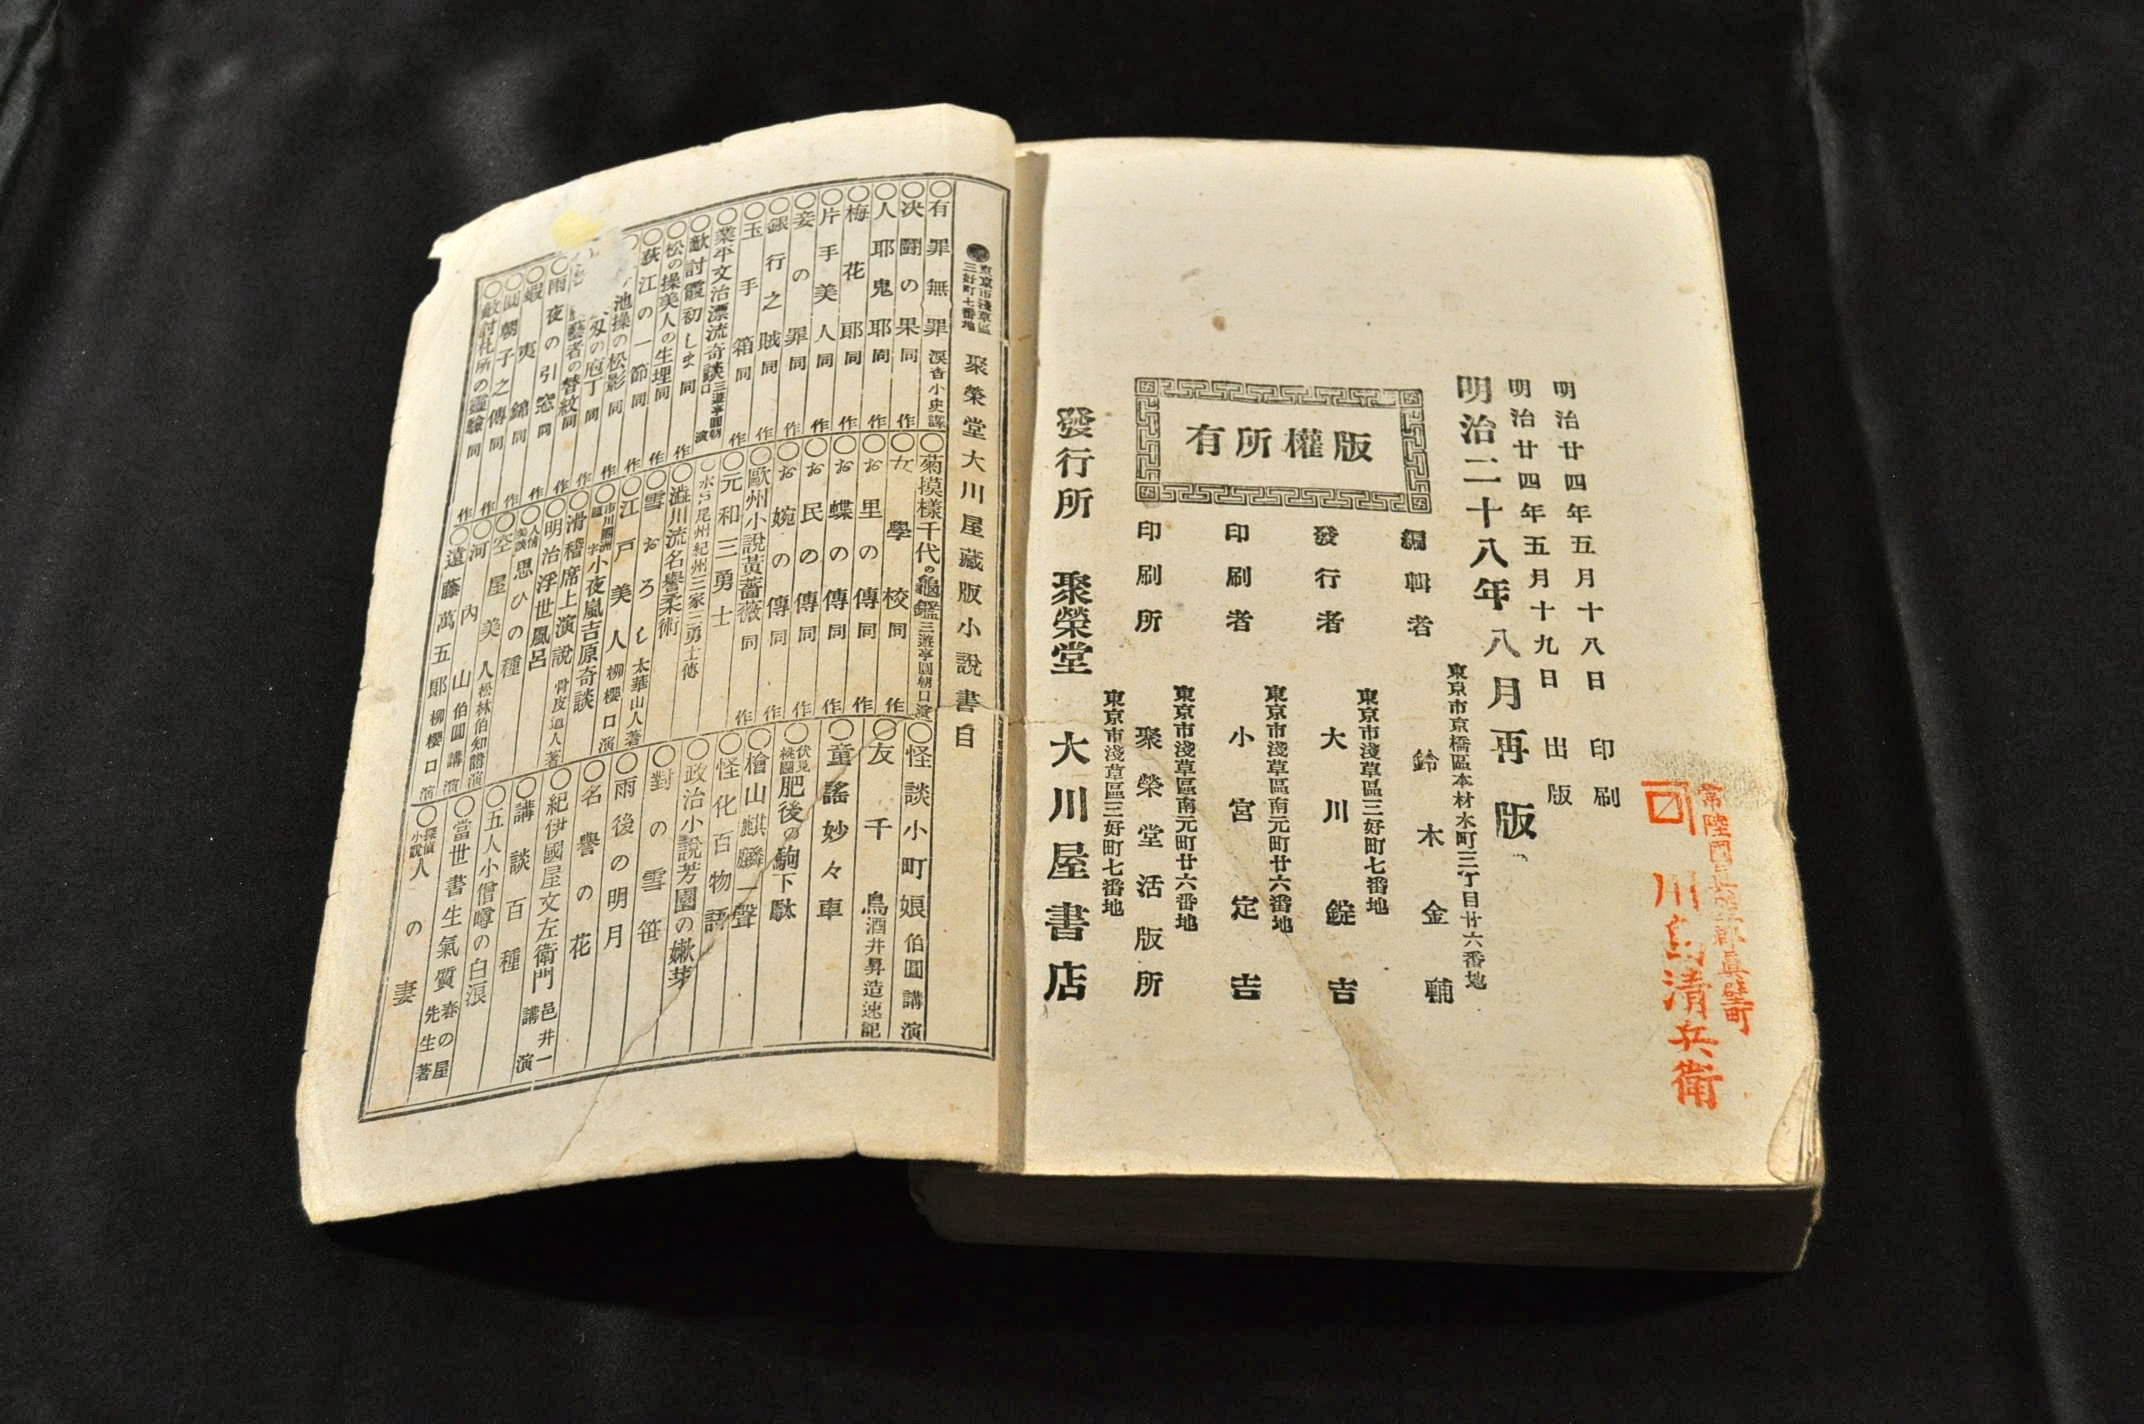 常陸國眞壁郡眞壁町
川島清兵衛
明治廿四年五月十八日 印刷
明治廿四年五月十九日 出版
明治二十八年八月再版
版權所有
編輯者
東京市京橋區本材木町三丁目廿六番地
鈴木金輔
發行者
東京市淺草區三好町七番地
大川錠吉
印刷者
東京市淺草區南元町廿六番地
小宮定吉
印刷所
東京市淺草區南元町廿六番地
聚榮堂活版所
東京市淺草區三好町七番地
發行所 聚榮堂 大川屋書店
東京市淺草區三好町七番地
聚榮堂大川屋藏版小說書目
○有罪無罪 淚香小史譯
○決鬪の果 同作
○人耶鬼耶 同作
○梅花耶 同作
○片手美人 同作
○妾の罪 同作
○銀行之賊 同作
○玉手箱 同作
○業平文治漂流奇談 三遊亭圓朝口演
○敵討霞初しま 同作
○松の操美人の生埋 同作
○荻江の一節 同作
池操の松影 同作
刄の庖丁 同作
藝者の替紋 同作
○雨夜の引窓 同作
○蝦夷錦 同作
○圓朝子之傳 同作
○敵討札所の靈驗 同作
○菊摸樣千代の龜鑑 三遊亭圓朝口演
○女學校 同作
○お里の傳 同作
○お蝶の傳 同作
○お民の傳 同作
○お婉の傳 同作
○歐州小說黃薔薇 同作
○元和三勇士
○水戸尾州紀州三家三勇士傳
○澁川流名譽柔術
○雪おろし 太華山人著
○江戸美人 柳櫻口演
○小夜嵐吉原奇談
○滑稽席上演說 骨皮道人著
○明治浮世風呂
○人情美談思ひの種
○空屋美人 松林伯知講演
○河内山 伯圓講演
○遠藤萬五郎 柳櫻口演
○怪談小町娘 伯圓講演
○友千鳥 酒井昇造速記
○童謠妙々車
○伏見桃園肥後の駒下駄
○檜山麒麟一聲
○怪化百物語
○政治小說芳園の嫩芽
○對の雪笹
○雨後の明月
○名譽の花
○紀伊國屋文左衛門 邑井一講演
○講談百種
○五人小僧噂の白浪
○當世書生氣質 春の屋先生著
○探偵小說人の妻